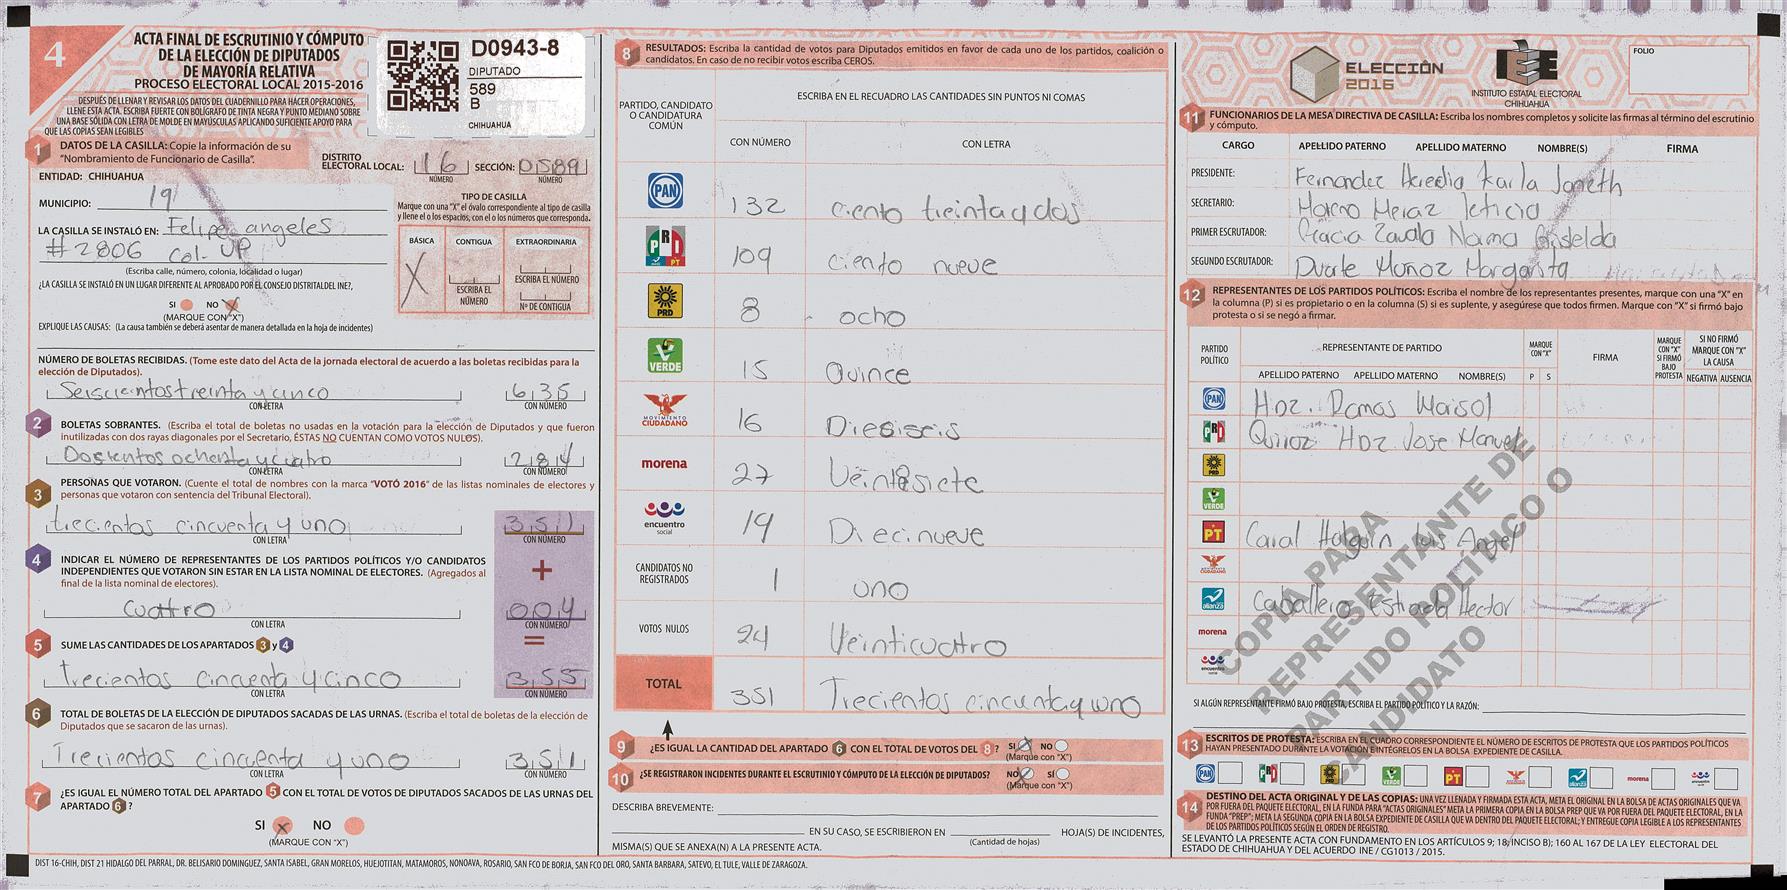 4
ACTA FINAL DE ESCRUTINIO Y CÓMPUTO
DE LA ELECCIÓN DE DIPUTADOS
DE MAYORÍA RELATIVA
PROCESO ELECTORAL LOCAL 2015-2016
DESPUÉS DE LLENAR Y REVISAR LOS DATOS DEL CUADERNILLO PARA HACER OPERACIONES,
LLENE ESTA ACTA. ESCRIBA FUERTE CON BOLÍGRAFO DE TINTA NEGRA Y PUNTO MEDIANO SOBRE
UNA BASE SÓLIDA CON LETRA DE MOLDE EN MAYÚSCULAS APLICANDO SUFICIENTE APOYO PARA
QUE LAS COPIAS SEAN LEGIBLES
D0943-8
DIPUTADO
589
B
CHIHUAHUA
1 DATOS DE LA CASILLA: Copie la información de su
"Nombramiento de Funcionario de Casilla".
DISTRITO
ELECTORAL LOCAL: 16 SECCIÓN: 0589
NÚMERO NÚMERO
ENTIDAD: CHIHUAHUA
MUNICIPIO: 19
LA CASILLA SE INSTALÓ EN: Felipe angeles
#2806 col. UP
(Escriba calle, número, colonia, localidad o lugar)
¿LA CASILLA SE INSTALÓ EN UN LUGAR DIFERENTE AL APROBADO POR EL CONSEJO DISTRITAL DEL INE?,
SI NO X
(MARQUE CON "X")
EXPLIQUE LAS CAUSAS: (La causa también se deberá asentar de manera detallada en la hoja de incidentes)
TIPO DE CASILLA
Marque con una "X" el óvalo correspondiente al tipo de casilla
y llene el o los espacios, con el o los números que corresponda.
BÁSICA CONTIGUA EXTRAORDINARIA
X
ESCRIBA EL NÚMERO
ESCRIBA EL NÚMERO
Nº DE CONTIGUA
NÚMERO DE BOLETAS RECIBIDAS. (Tome este dato del Acta de la jornada electoral de acuerdo a las boletas recibidas para la
elección de Diputados).
Seiscientos treinta y cinco 635
CON LETRA CON NÚMERO
2 BOLETAS SOBRANTES. (Escriba el total de boletas no usadas en la votación para la elección de Diputados y que fueron
inutilizadas con dos rayas diagonales por el Secretario, ÉSTAS NO CUENTAN COMO VOTOS NULOS).
Dosientos ochenta y cuatro 284
CON LETRA CON NÚMERO
3 PERSONAS QUE VOTARON. (Cuente el total de nombres con la marca "VOTÓ 2016" de las listas nominales de electores y
personas que votaron con sentencia del Tribunal Electoral).
trecientos cincuenta y uno 351
CON LETRA CON NÚMERO
4 INDICAR EL NÚMERO DE REPRESENTANTES DE LOS PARTIDOS POLÍTICOS Y/O CANDIDATOS
INDEPENDIENTES QUE VOTARON SIN ESTAR EN LA LISTA NOMINAL DE ELECTORES. (Agregados al
final de la lista nominal de electores).
+
cuatro 004
CON LETRA CON NÚMERO
5 SUME LAS CANTIDADES DE LOS APARTADOS 3 y 4
=
trecientos cincuenta y cinco 355
CON LETRA CON NÚMERO
6 TOTAL DE BOLETAS DE LA ELECCIÓN DE DIPUTADOS SACADAS DE LAS URNAS. (Escriba el total de boletas de la elección de
Diputados que se sacaron de las urnas).
Trecientos cincuenta y uno 351
CON LETRA CON NÚMERO
7 ¿ES IGUAL EL NÚMERO TOTAL DEL APARTADO 5 CON EL TOTAL DE VOTOS DE DIPUTADOS SACADOS DE LAS URNAS DEL
APARTADO 6?
SI X NO
(MARQUE CON "X")
8 RESULTADOS: Escriba la cantidad de votos para Diputados emitidos en favor de cada uno de los partidos, coalición o
candidatos. En caso de no recibir votos escriba CEROS.
PARTIDO, CANDIDATO
O CANDIDATURA
COMÚN
ESCRIBA EN EL RECUADRO LAS CANTIDADES SIN PUNTOS NI COMAS
CON NÚMERO CON LETRA
PAN 132 ciento treinta y dos
PRI PT 109 ciento nueve
PRD 8 ocho
VERDE 15 Quince
MOVIMIENTO CIUDADANO 16 Dieciseis
morena 27 Veintisiete
encuentro social 19 Diecinueve
CANDIDATOS NO
REGISTRADOS 1 uno
VOTOS NULOS 24 Veinticuatro
TOTAL 351 Trecientos cincuenta y uno
9 ¿ES IGUAL LA CANTIDAD DEL APARTADO 6 CON EL TOTAL DE VOTOS DEL 8? SI NO
(Marque con "X")
10 ¿SE REGISTRARON INCIDENTES DURANTE EL ESCRUTINIO Y CÓMPUTO DE LA ELECCIÓN DE DIPUTADOS? NO SÍ
(Marque con "X")
DESCRIBA BREVEMENTE:
EN SU CASO, SE ESCRIBIERON EN HOJA(S) DE INCIDENTES,
(Cantidad de hojas)
MISMA(S) QUE SE ANEXA(N) A LA PRESENTE ACTA.
ELECCIÓN
2016
IEE
INSTITUTO ESTATAL ELECTORAL
CHIHUAHUA
FOLIO
11 FUNCIONARIOS DE LA MESA DIRECTIVA DE CASILLA: Escriba los nombres completos y solicite las firmas al término del escrutinio
y cómputo.
CARGO APELLIDO PATERNO APELLIDO MATERNO NOMBRE(S) FIRMA
PRESIDENTE: Fernandez Heredia Karla Janeth
SECRETARIO: Moreno Meraz leticia
PRIMER ESCRUTADOR: Gracia Zavala Norma Griselda
SEGUNDO ESCRUTADOR: Duarte Muñoz Margarita
12 REPRESENTANTES DE LOS PARTIDOS POLÍTICOS: Escriba el nombre de los representantes presentes, marque con una "X" en
la columna (P) si es propietario o en la columna (S) si es suplente, y asegúrese que todos firmen. Marque con "X" si firmó bajo
protesta o si se negó a firmar.
PARTIDO
POLÍTICO
REPRESENTANTE DE PARTIDO
APELLIDO PATERNO APELLIDO MATERNO NOMBRE(S)
MARQUE
CON "X"
P S
FIRMA
MARQUE
CON "X"
SI FIRMÓ
BAJO
PROTESTA
SI NO FIRMÓ
MARQUE CON "X"
LA CAUSA
NEGATIVA AUSENCIA
PAN Hdz. Ramos Marisol
PRI Quiroz Hdz Jose Manuel
PRD
VERDE
PT Caral Holguin Luis Angel
MOVIMIENTO CIUDADANO
alianza Caballero Estrada Hector
morena
encuentro social
COPIA PARA
REPRESENTANTE DE
PARTIDO POLÍTICO O
CANDIDATO
SI ALGÚN REPRESENTANTE FIRMÓ BAJO PROTESTA, ESCRIBA EL PARTIDO POLÍTICO Y LA RAZÓN:
13 ESCRITOS DE PROTESTA: ESCRIBA EN EL CUADRO CORRESPONDIENTE EL NÚMERO DE ESCRITOS DE PROTESTA QUE LOS PARTIDOS POLÍTICOS
HAYAN PRESENTADO DURANTE LA VOTACIÓN E INTÉGRELOS EN LA BOLSA EXPEDIENTE DE CASILLA.
PAN PRI PRD VERDE PT alianza morena
14 DESTINO DEL ACTA ORIGINAL Y DE LAS COPIAS: UNA VEZ LLENADA Y FIRMADA ESTA ACTA, META EL ORIGINAL EN LA BOLSA DE ACTAS ORIGINALES QUE VA
POR FUERA DEL PAQUETE ELECTORAL, EN LA FUNDA PARA "ACTAS ORIGINALES" META LA PRIMERA COPIA EN LA BOLSA PREP QUE VA POR FUERA DEL PAQUETE ELECTORAL, EN LA
FUNDA "PREP"; META LA SEGUNDA COPIA EN LA BOLSA EXPEDIENTE DE CASILLA QUE VA DENTRO DEL PAQUETE ELECTORAL; Y ENTREGUE COPIA LEGIBLE A LOS REPRESENTANTES
DE LOS PARTIDOS POLÍTICOS SEGÚN EL ORDEN DE REGISTRO.
SE LEVANTÓ LA PRESENTE ACTA CON FUNDAMENTO EN LOS ARTÍCULOS 9; 18, INCISO B); 160 AL 167 DE LA LEY ELECTORAL DEL
ESTADO DE CHIHUAHUA Y DEL ACUERDO INE / CG1013 / 2015.
DIST 16-CHIH, DIST 21 HIDALGO DEL PARRAL, DR. BELISARIO DOMINGUEZ, SANTA ISABEL, GRAN MORELOS, HUEJOTITAN, MATAMOROS, NONOAVA, ROSARIO, SAN FCO DE BORJA, SAN FCO DEL ORO, SANTA BARBARA, SATEVO, EL TULE, VALLE DE ZARAGOZA.